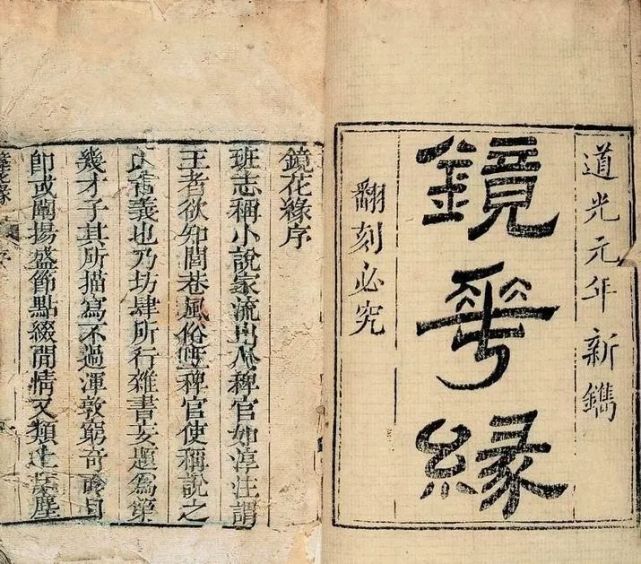 道光元年新鐫
鏡華緣
翻刻必究
鏡花緣序
班志稱小說家流出於稗官如淳注謂
王者欲知閭巷風俗稗官使稱說之
舊義也乃坊肆所行雜書妄題為第
幾才子其所描寫不過渾敦窮奇面目
即或闡揚盛節點綴閒情又類土羹塵